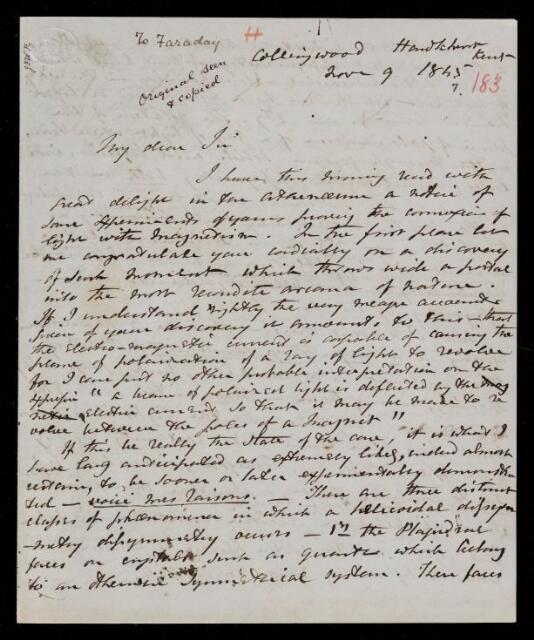 To Faraday H
Original seen
& copied
Collingwood Hawkhurst
Kent
Nov 9 1845
7. 183
My dear Sir
I have this morning read with
great delight in the Athenaeum a notice of
some experiments of yours proving the connexion of
light with magnetism. In the first place let
me congratulate you cordially on a discovery
of such moment which throws wide a portal
into the most recondite arcana of nature.
If I understand rightly the very meagre account
given of your discovery it amounts to this – that
the electro-magnetic current is capable of causing the
plane of polarization of a ray of light to revolve
for I can put no other probable interpretation on the
expression "a beam of polarized light is deflected by the mag
netic electric current so that it may be made to re
volve between the poles of a magnet"
If this be really the state of the case, it is what I
have long anticipated as extremely likely, indeed almost
certain, to be sooner or later experimentally demonstra
ted – voici mes raisons. – There are three distinct
classes of phaenomena in which a helicoidal dissym
-metry occurs – 1st the Plagiedral
faces on crystals such as quartz which belong
to an otherwise symmetrical system. These faces